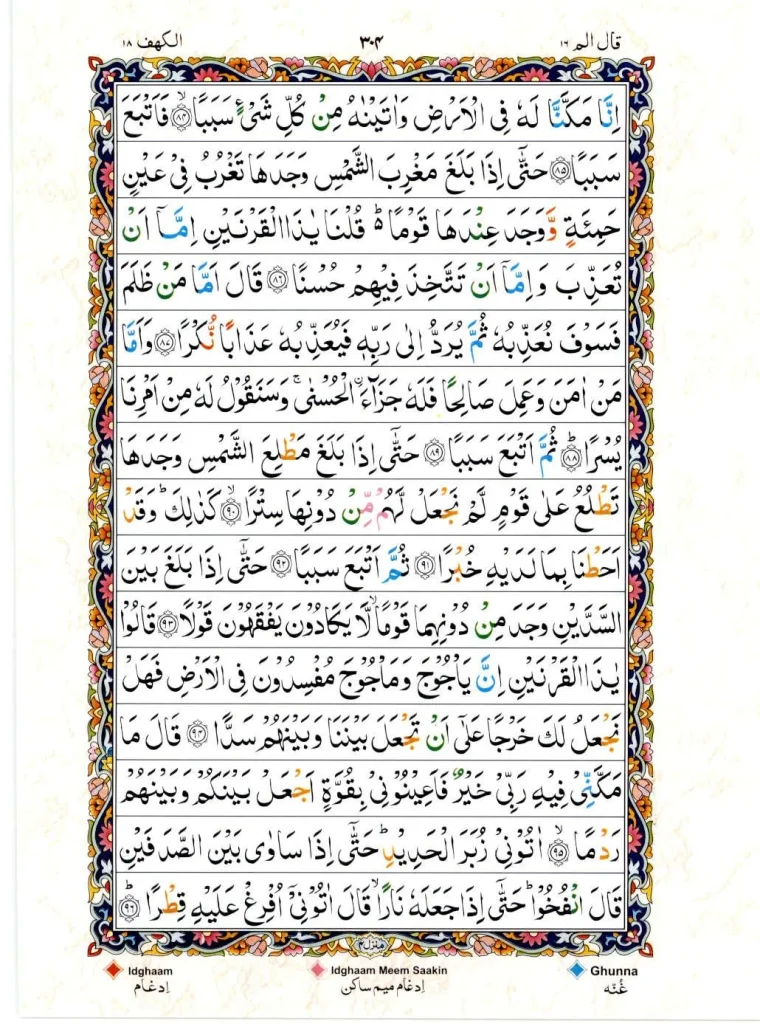 قال الم ۱۶ ۳۰۴ الكهف ۱۸
اِنَّا مَكَّنَّا لَهٗ فِى الْاَرْضِ وَاٰتَيْنٰهُ مِنْ كُلِّ شَىْءٍ سَبَبًا ۙ‏﴿۸۴﴾ فَاَتْبَعَ
سَبَبًا ﴿۸۵﴾ حَتّٰٓى اِذَا بَلَغَ مَغْرِبَ الشَّمْسِ وَجَدَهَا تَغْرُبُ فِىْ عَيْنٍ
حَمِئَةٍ وَّ وَجَدَ عِنْدَهَا قَوْمًا ؕ قُلْنَا يٰذَا الْقَرْنَيْنِ اِمَّاۤ اَنْ
تُعَذِّبَ وَاِمَّاۤ اَنْ تَتَّخِذَ فِيْهِمْ حُسْنًا ﴿۸۶﴾ قَالَ اَمَّا مَنْ ظَلَمَ
فَسَوْفَ نُعَذِّبُهٗ ثُمَّ يُرَدُّ اِلٰى رَبِّهٖ فَيُعَذِّبُهٗ عَذَابًا نُّكْرًا ﴿۸۷﴾ وَاَمَّا
مَنْ اٰمَنَ وَعَمِلَ صَالِحًا فَلَهٗ جَزَآءَ ۨالْحُسْنٰى ۚ وَسَنَقُوْلُ لَهٗ مِنْ اَمْرِنَا
يُسْرًا ؕ ﴿۸۸﴾ ثُمَّ اَتْبَعَ سَبَبًا ﴿۸۹﴾ حَتّٰٓى اِذَا بَلَغَ مَطْلِعَ الشَّمْسِ وَجَدَهَا
تَطْلُعُ عَلٰى قَوْمٍ لَّمْ نَجْعَلْ لَّهُمْ مِّنْ دُوْنِهَا سِتْرًا ۙ ﴿۹۰﴾ كَذٰلِكَ ؕ وَقَدْ
اَحَطْنَا بِمَا لَدَيْهِ خُبْرًا ﴿۹۱﴾ ثُمَّ اَتْبَعَ سَبَبًا ﴿۹۲﴾ حَتّٰٓى اِذَا بَلَغَ بَيْنَ
السَّدَّيْنِ وَجَدَ مِنْ دُوْنِهِمَا قَوْمًا ۙ لَّا يَكَادُوْنَ يَفْقَهُوْنَ قَوْلًا ﴿۹۳﴾ قَالُوْا
يٰذَا الْقَرْنَيْنِ اِنَّ يَاْجُوْجَ وَمَاْجُوْجَ مُفْسِدُوْنَ فِى الْاَرْضِ فَهَلْ
نَجْعَلُ لَكَ خَرْجًا عَلٰٓى اَنْ تَجْعَلَ بَيْنَنَا وَبَيْنَهُمْ سَدًّا ﴿۹۴﴾ قَالَ مَا
مَكَّنِّىْ فِيْهِ رَبِّىْ خَيْرٌ فَاَعِيْنُوْنِىْ بِقُوَّةٍ اَجْعَلْ بَيْنَكُمْ وَبَيْنَهُمْ
رَدْمًا ۙ ﴿۹۵﴾ اٰتُوْنِىْ زُبَرَ الْحَدِيْدِ ؕ حَتّٰٓى اِذَا سَاوٰى بَيْنَ الصَّدَفَيْنِ
قَالَ انْفُخُوْا ؕ حَتّٰٓى اِذَا جَعَلَهٗ نَارًا ۙ قَالَ اٰتُوْنِىْۤ اُفْرِغْ عَلَيْهِ قِطْرًا ؕ ﴿۹۶﴾
منزل ۴
Idghaam Idghaam Meem Saakin Ghunna
اِدغام اِدغام میم ساکن غُنّه